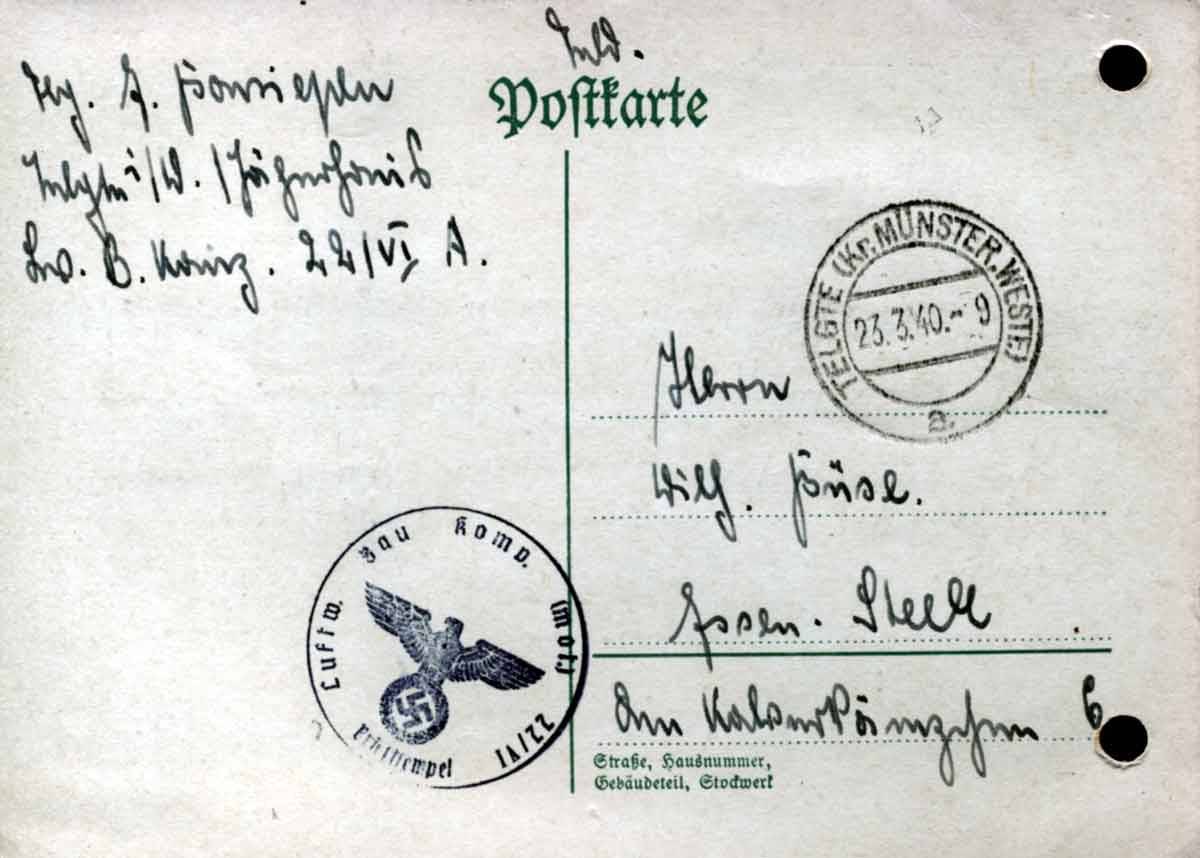 Feld.
Postkarte
Telgte i/W. / Jägerhaus
Lw. B. Komp. 22/VI A.
TELGTE (Kr. MÜNSTER, WESTF.)
23.3.40.- 9
a
Herrn
Wilh. Büse.
Essen. Steele
Am 6
Straße, Hausnummer,
Gebäudeteil, Stockwerk
Luftw. Bau Komp. (mot) 22/VI